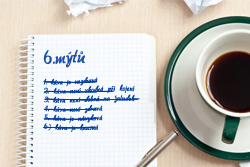 6.mýtů
1. káva je
2. káva není vhodná při kojení
3. káva není dobrá na žaludek
4. káva není zdravá
5. káva je návyková
6.) káva je